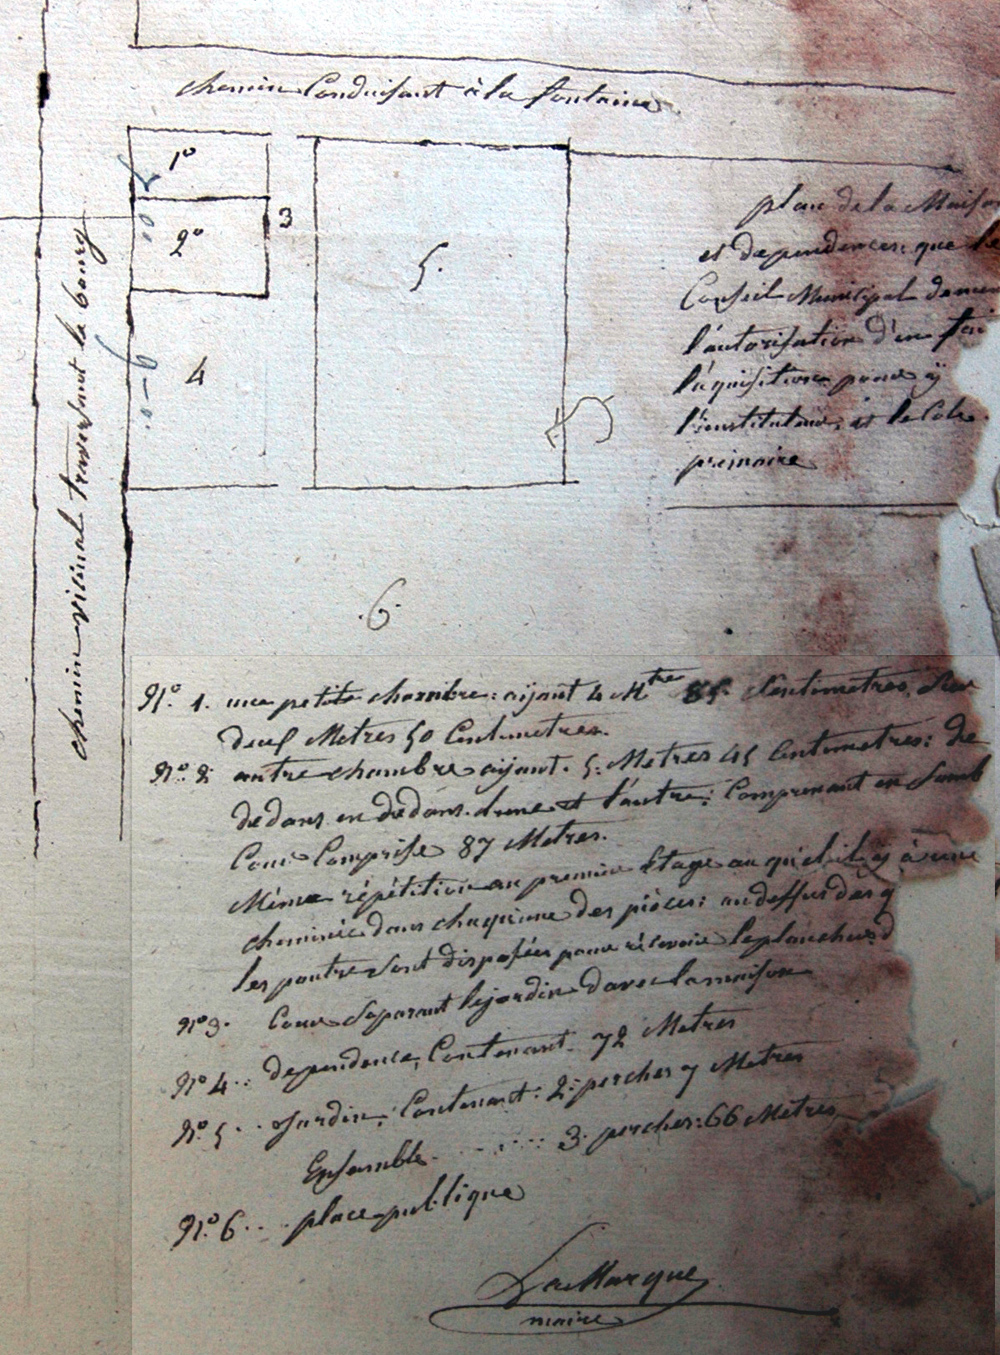 chemin Conduisant à la fontaine
1º
2º
3
4
5.
chemin vicinal traversant le bourg
plan de la Maison
et dépendences: que le
Conseil Municipal deman
l'autorisation d'en fai
l'aquisition pour ÿ
l'instituteur, et lecole
primaire
.6.
Nº. 1. une petite chambre: aÿant 4 Mtre 85. Centimetres, Sur
deuf Metres 50 Centimetres.
Nº. 2: autre chambre aÿant. 5: Metres 45 Centimetres: de
dedans en dedans. d'une et l'autre: Comprenant en Sembl
Cour Comprise 87 Metres.
Même répétition au premier Etage au qu'el il ÿ à une
cheminée dans chaqu'une des pièces: au dessus des q
les poutre Sont disposées pour récevoir le plancher d
Nº 3. Cour Séparant le jardin d'avec la maison
Nº 4.. dependence, Contenant. 72 Metres
Nº. 5.. Jardin, Contenant: 2: perches 7 Metres
Ensemble. ..... 3: perches: 66 Metres
Nº. 6... place publique
LaMarque
maire